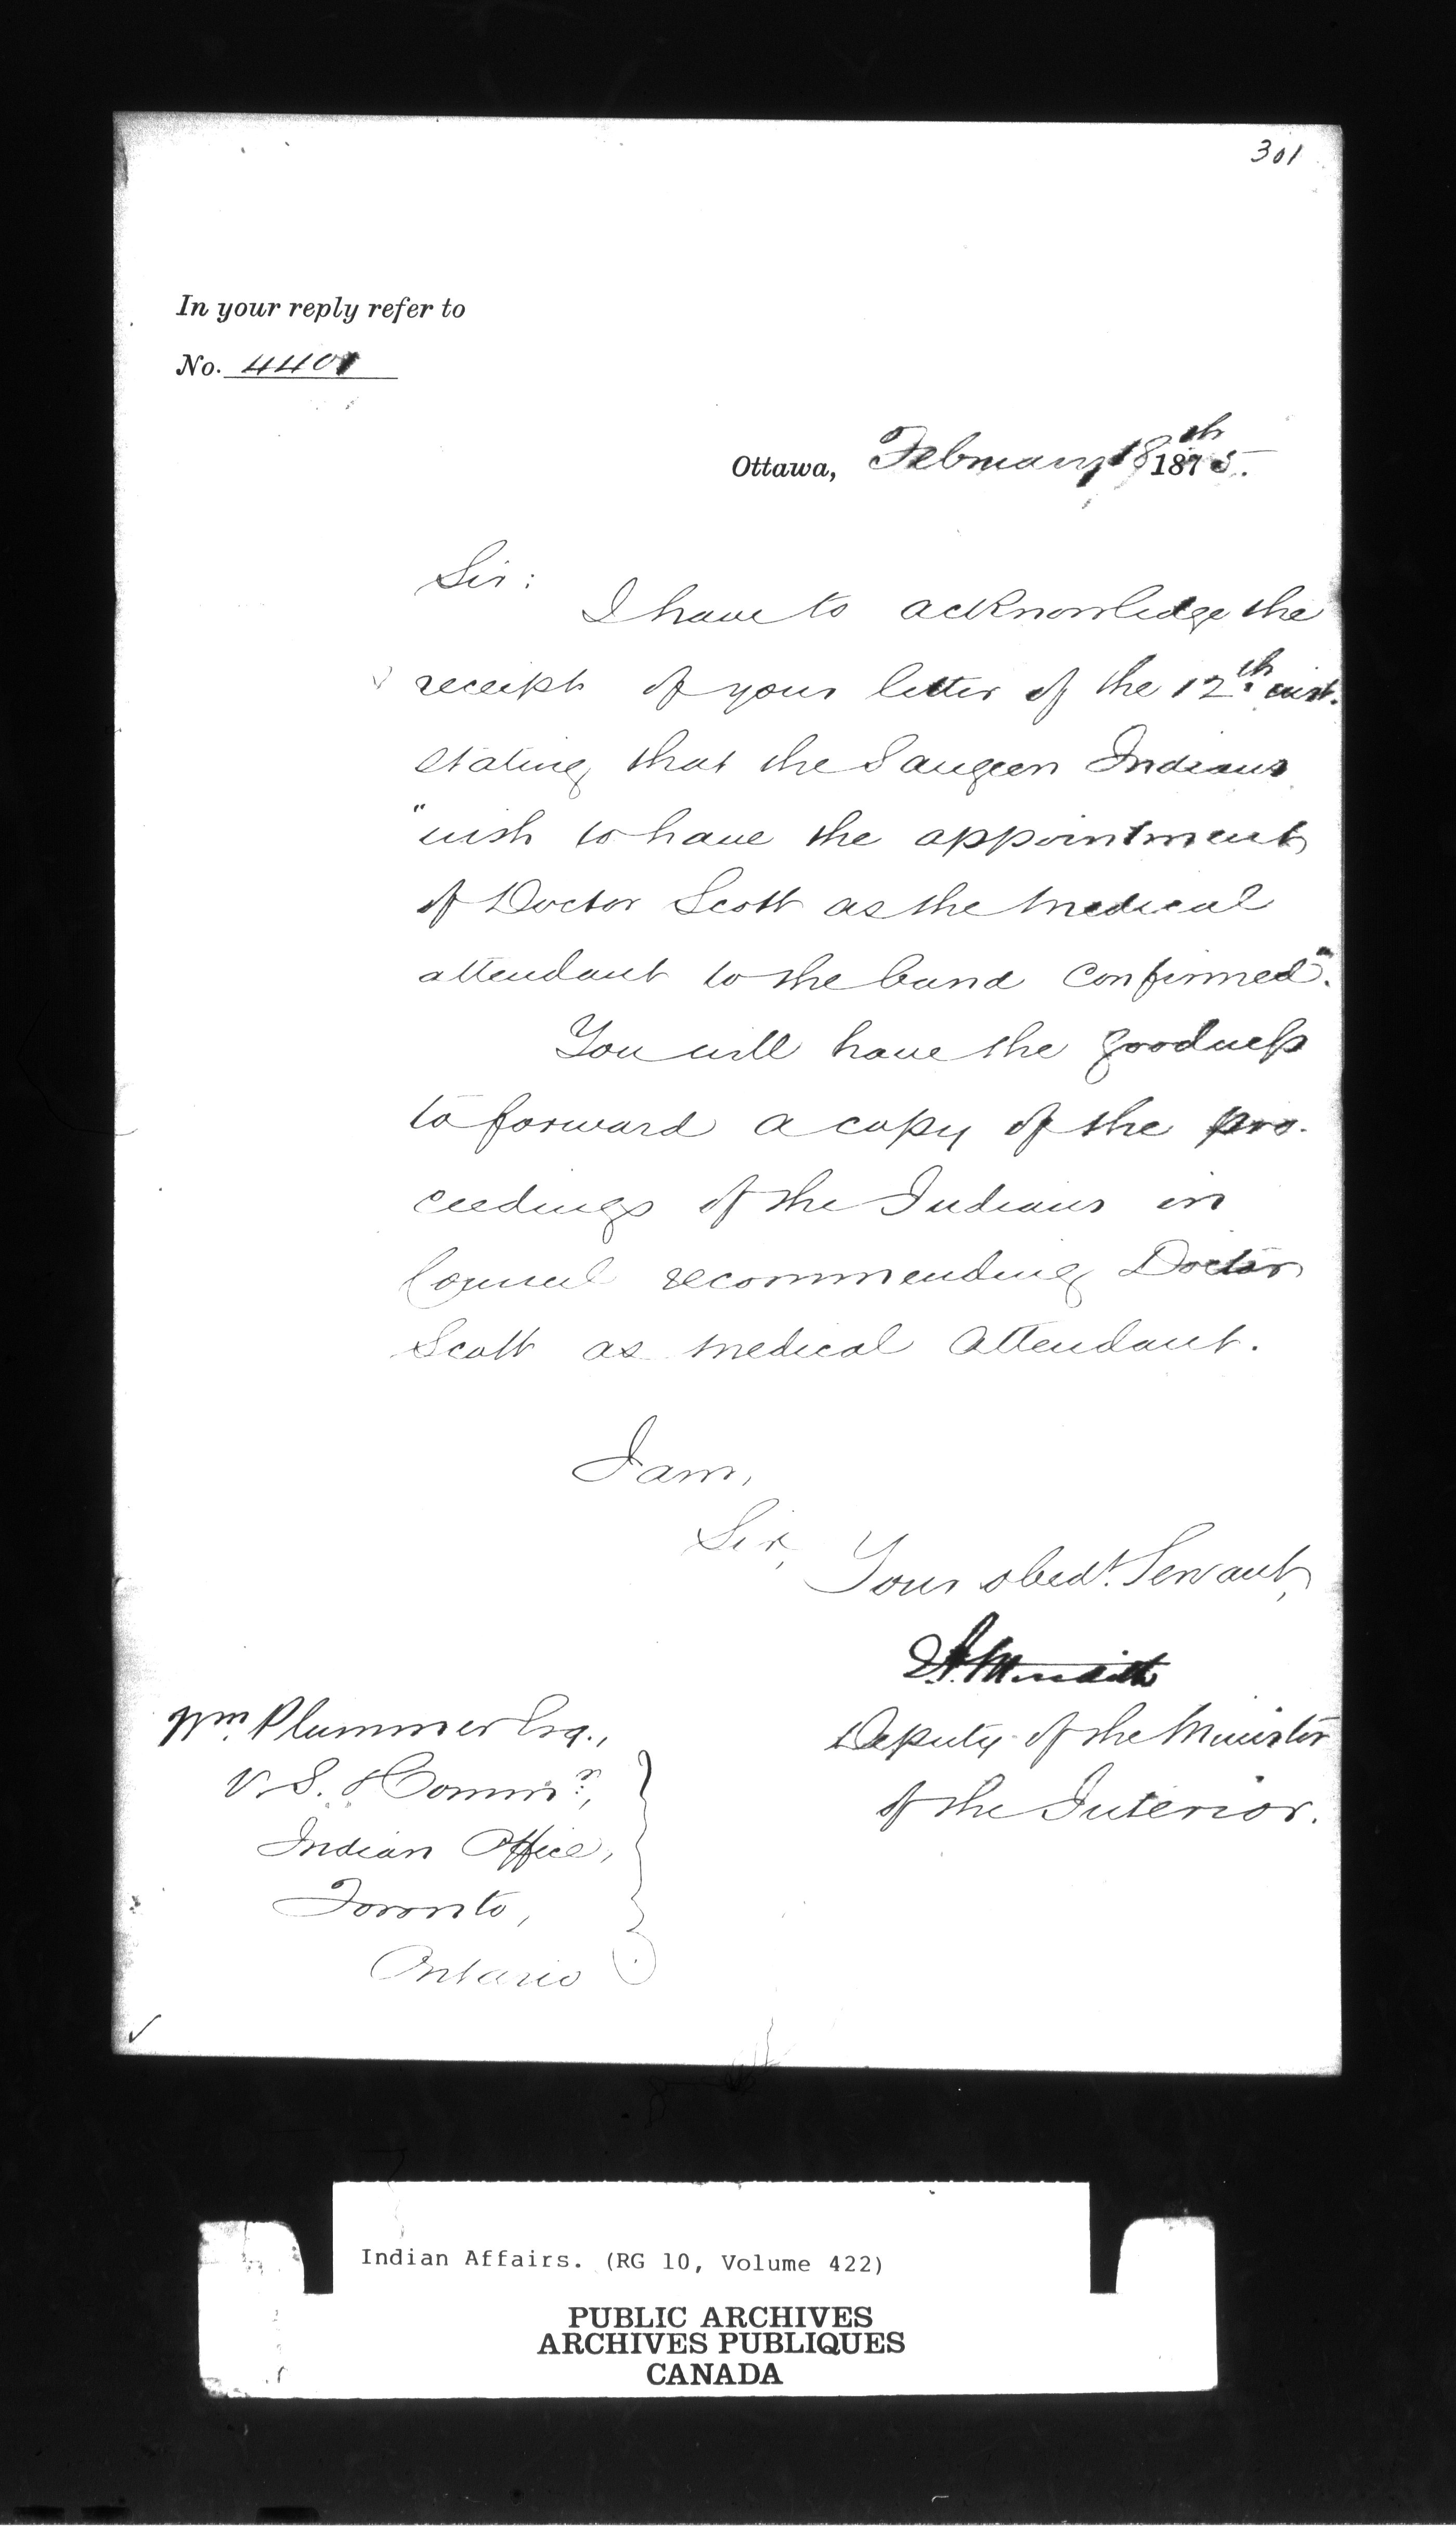 301
In your reply refer to
No. 4401
Ottawa, February 18th 1875.
Sir:
I have to acknowledge the
receipt of your letter of the 12th inst.
stating that the Saugeen Indians
"wish to have the appointment
of Doctor Scott as the medical
attendant to the band confirmed".
You will have the goodness
to forward a copy of the pro-
ceedings of the Indians in
Council recommending Doctor
Scott as medical attendant.
I am,
Sir,
Your obedt. Servant,
Meredith
Deputy of the Minister
of the Interior.
Wm. Plummer Esq.,
V. S. & Commr.,
Indian Office,
Toronto,
Ontario
Indian Affairs. (RG 10, Volume 422)
PUBLIC ARCHIVES
ARCHIVES PUBLIQUES
CANADA